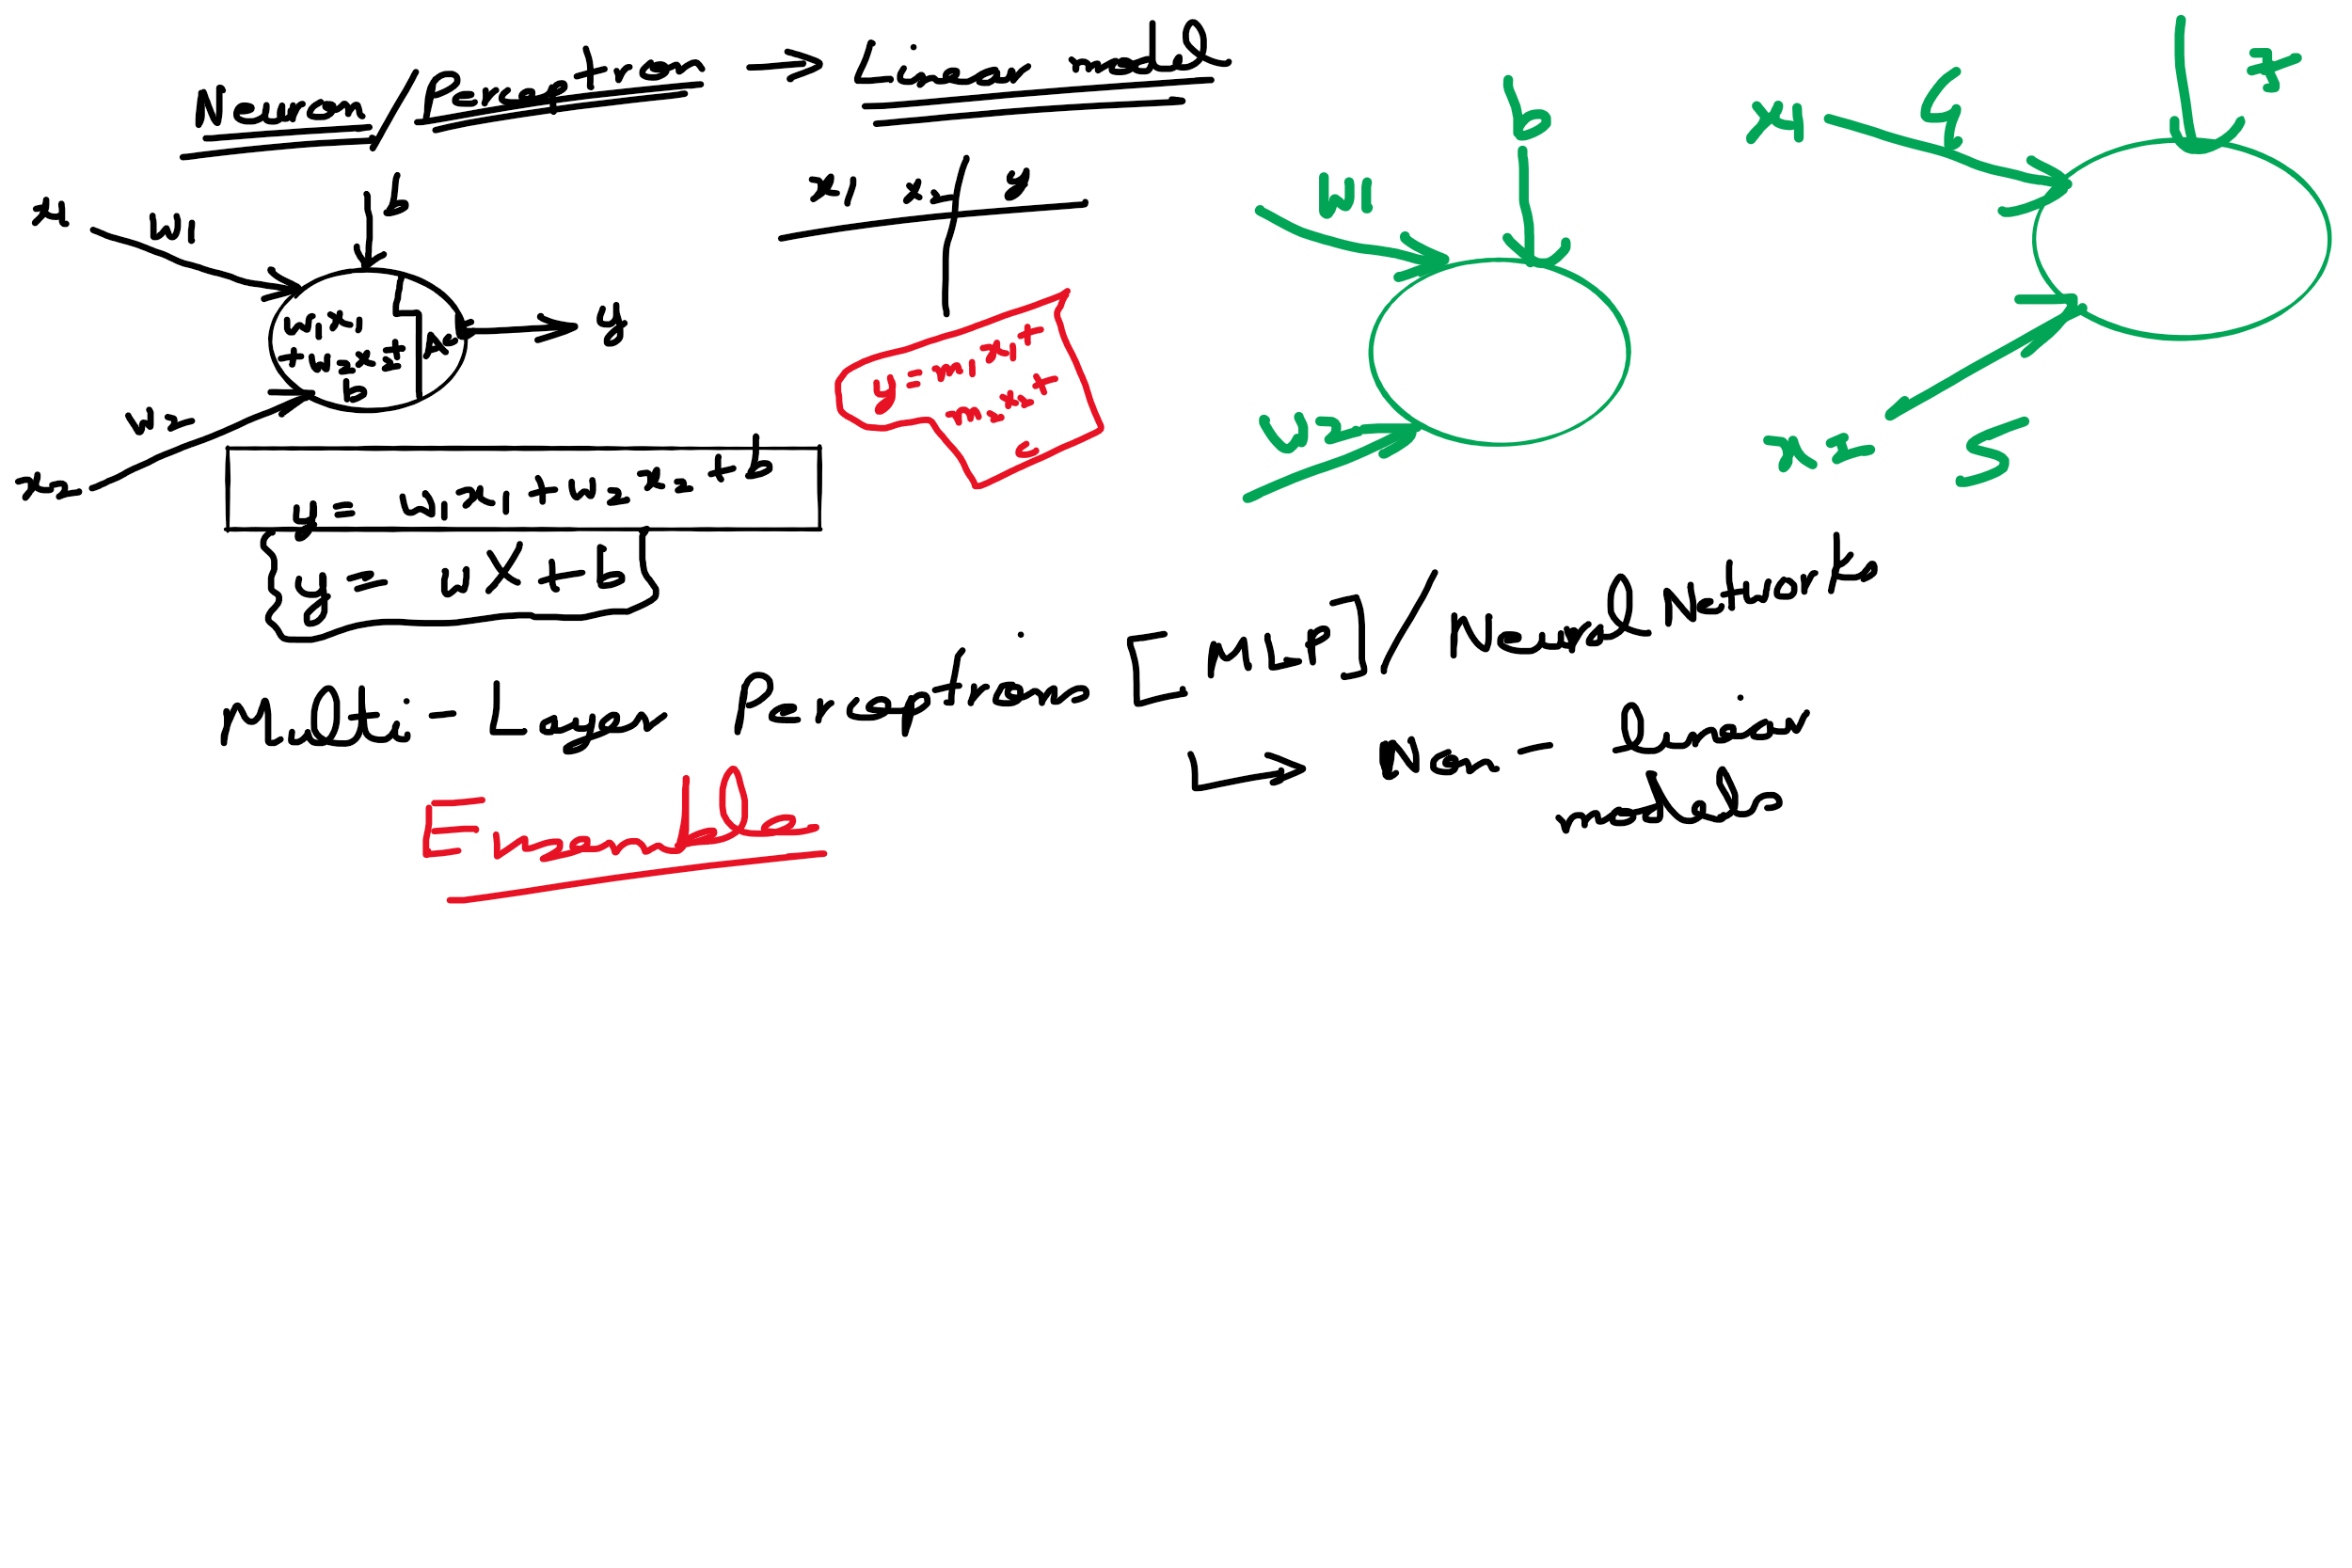 Neuron/Perceptron → Linear model
x1 w1 b
x1 x2 y
w1x1
+w2x2+
b
Ac
y
w2
x2
y = w1x1 + w2x2 + b
y = wX + b
y = m1x1+
m2x2+
c
w1 b
w2
x1 6 7
x2 5
Multi-Layer Perceptrons [MLP]/Neural Networks
↳ Non-linear
models
Ensemble